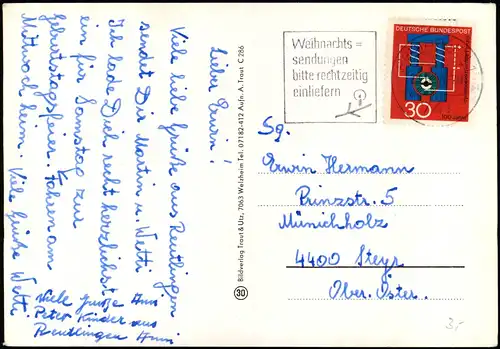 Lieber Erwin!
Viele liebe Grüße aus Reutlingen
sendet Dir Martin u. Wetti
Ich lade Dich recht herzlichst
ein für Samstag zur
Geburtstagsfeier. Fahren am
Mittwoch heim. Viele Grüße Wetti
Viele Grüße Anni
Peter Kinder aus
Reutlingen Anni
Bildverlag Traut & Utz, 7063 Welzheim Tel. 07182-412 Aufn. A. Traut C 286
30
Weihnachts=
sendungen
bitte rechtzeitig
einliefern
DEUTSCHE BUNDESPOST
30
100 Jahre
Sg.
Erwin Hermann
Prinzstr. 5
Münichholz
4400 Steyr
Ober. Öster.